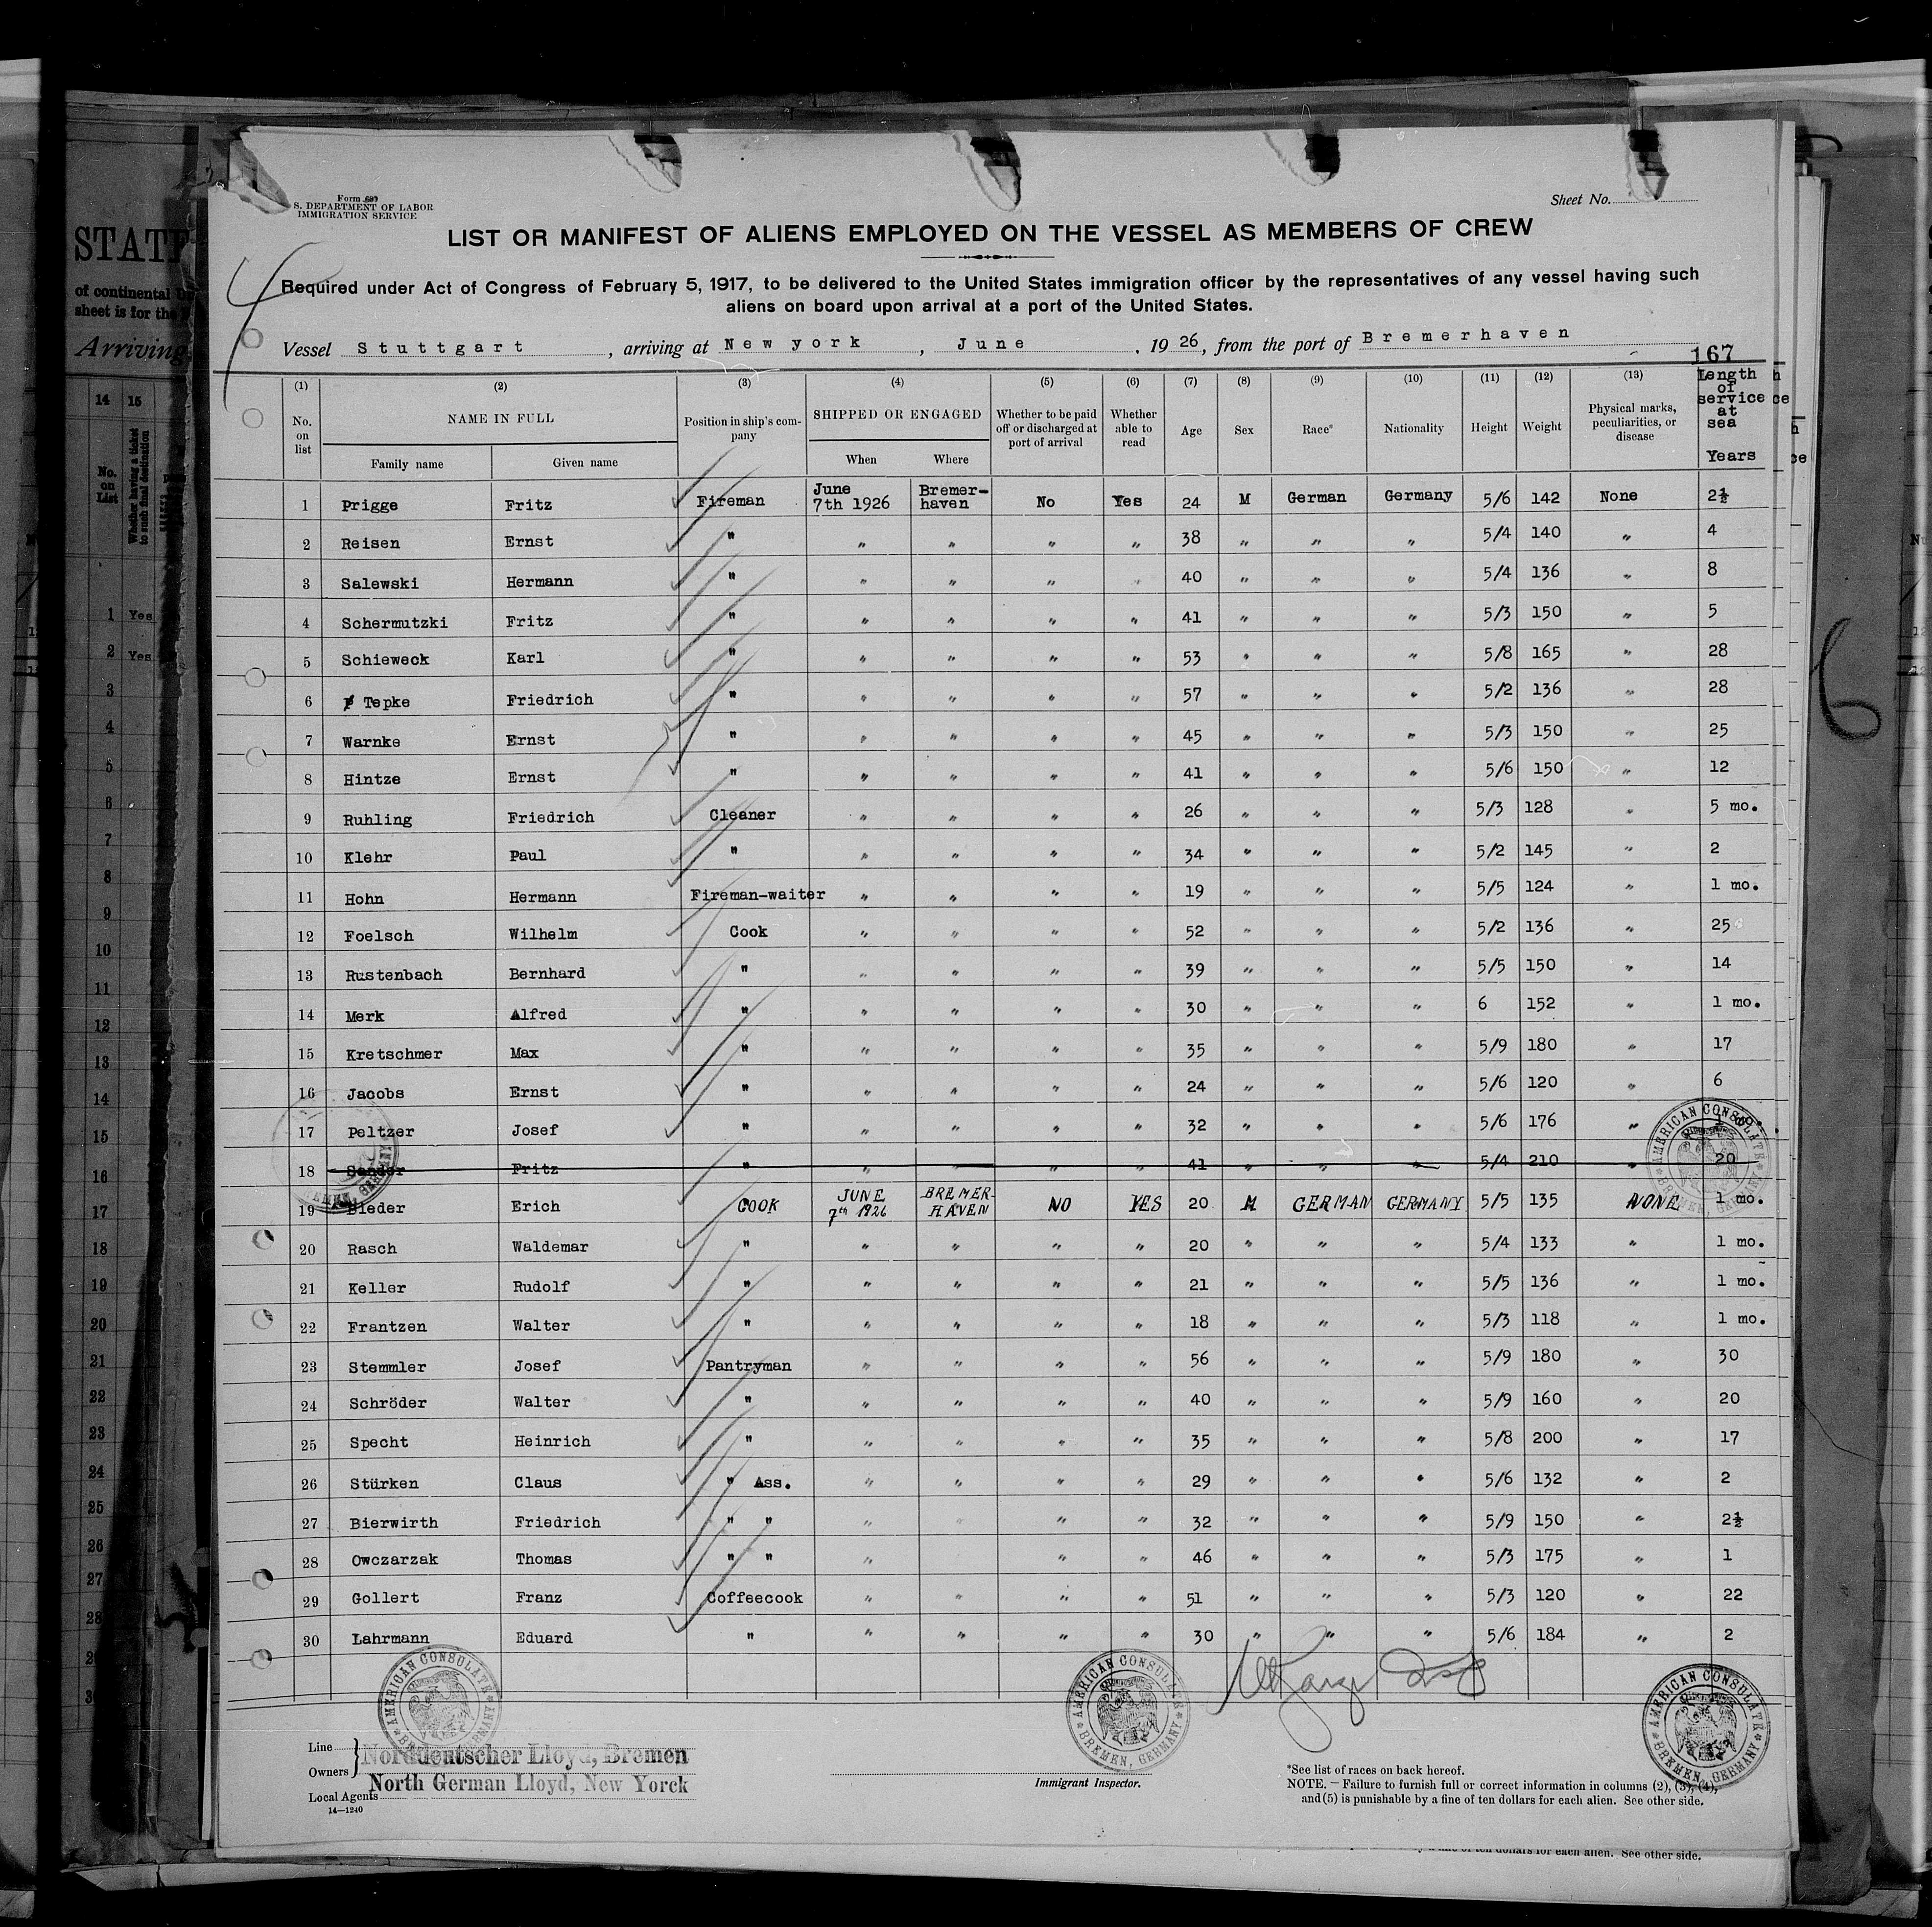 Form 689
S. DEPARTMENT OF LABOR
IMMIGRATION SERVICE
Sheet No.
LIST OR MANIFEST OF ALIENS EMPLOYED ON THE VESSEL AS MEMBERS OF CREW
Required under Act of Congress of February 5, 1917, to be delivered to the United States immigration officer by the representatives of any vessel having such
aliens on board upon arrival at a port of the United States.
Vessel Stuttgart, arriving at New york, June, 1926, from the port of Bremerhaven
167
(1) (2) (3) (4) (5) (6) (7) (8) (9) (10) (11) (12) (13) Length of service at sea Years
No. on list NAME IN FULL Position in ship's company SHIPPED OR ENGAGED Whether to be paid off or discharged at port of arrival Whether able to read Age Sex Race* Nationality Height Weight Physical marks, peculiarities, or disease
Family name Given name When Where
1 Prigge Fritz Fireman June 7th 1926 Bremer-haven No Yes 24 M German Germany 5/6 142 None 2½
2 Reisen Ernst " " " " " 38 " " " 5/4 140 " 4
3 Salewski Hermann " " " " " 40 " " " 5/4 136 " 8
4 Schermutzki Fritz " " " " " 41 " " " 5/3 150 " 5
5 Schieweck Karl " " " " " 53 " " " 5/8 165 " 28
6 Tepke Friedrich " " " " " 57 " " " 5/2 136 " 28
7 Warnke Ernst " " " " " 45 " " " 5/3 150 " 25
8 Hintze Ernst " " " " " 41 " " " 5/6 150 " 12
9 Ruhling Friedrich Cleaner " " " " 26 " " " 5/3 128 " 5 mo.
10 Klehr Paul " " " " " 34 " " " 5/2 145 " 2
11 Hohn Hermann Fireman-waiter " " " " 19 " " " 5/5 124 " 1 mo.
12 Foelsch Wilhelm Cook " " " " 52 " " " 5/2 136 " 25
13 Rustenbach Bernhard " " " " " 39 " " " 5/5 150 " 14
14 Merk Alfred " " " " " 30 " " " 6 152 " 1 mo.
15 Kretschmer Max " " " " " 35 " " " 5/9 180 " 17
16 Jacobs Ernst " " " " " 24 " " " 5/6 120 " 6
17 Peltzer Josef " " " " " 32 " " " 5/6 176 "
18 Sander Fritz " " " " " 41 " " " 5/4 210 " 20
19 Bieder Erich COOK JUNE 7th 1926 BREMER-HAVEN NO YES 20 M GERMAN GERMANY 5/5 135 NONE 1 mo.
20 Rasch Waldemar " " " " " 20 " " " 5/4 133 " 1 mo.
21 Keller Rudolf " " " " " 21 " " " 5/5 136 " 1 mo.
22 Frantzen Walter " " " " " 18 " " " 5/3 118 " 1 mo.
23 Stemmler Josef Pantryman " " " " 56 " " " 5/9 180 " 30
24 Schröder Walter " " " " " 40 " " " 5/9 160 " 20
25 Specht Heinrich " " " " " 35 " " " 5/8 200 " 17
26 Stürken Claus " Ass. " " " " 29 " " " 5/6 132 " 2
27 Bierwirth Friedrich " " " " " " 32 " " " 5/9 150 " 2½
28 Owczarzak Thomas " " " " " 46 " " " 5/3 175 " 1
29 Gollert Franz Coffeecook " " " " 51 " " " 5/3 120 " 22
30 Lahrmann Eduard " " " " " 30 " " " 5/6 184 " 2
AMERICAN CONSULATE BREMEN, GERMANY
AMERICAN CONSULATE BREMEN, GERMANY
AMERICAN CONSULATE BREMEN, GERMANY
AMERICAN CONSULATE BREMEN, GERMANY
Line
Owners
Norddeutscher Lloyd, Bremen
North German Lloyd, New Yorck
Local Agents
14—1240
Immigrant Inspector.
*See list of races on back hereof.
NOTE. — Failure to furnish full or correct information in columns (2), (3), (4),
and (5) is punishable by a fine of ten dollars for each alien. See other side.
of ten dollars for each alien. See other side.
STATE
of continental
sheet is for the
Arriving
14 15
No. on List
Whether having a ticket to such final destination
1 Yes
2 Yes
3
4
5
6
7
8
9
10
11
12
13
14
15
16
17
18
19
20
21
22
23
24
25
26
27
28